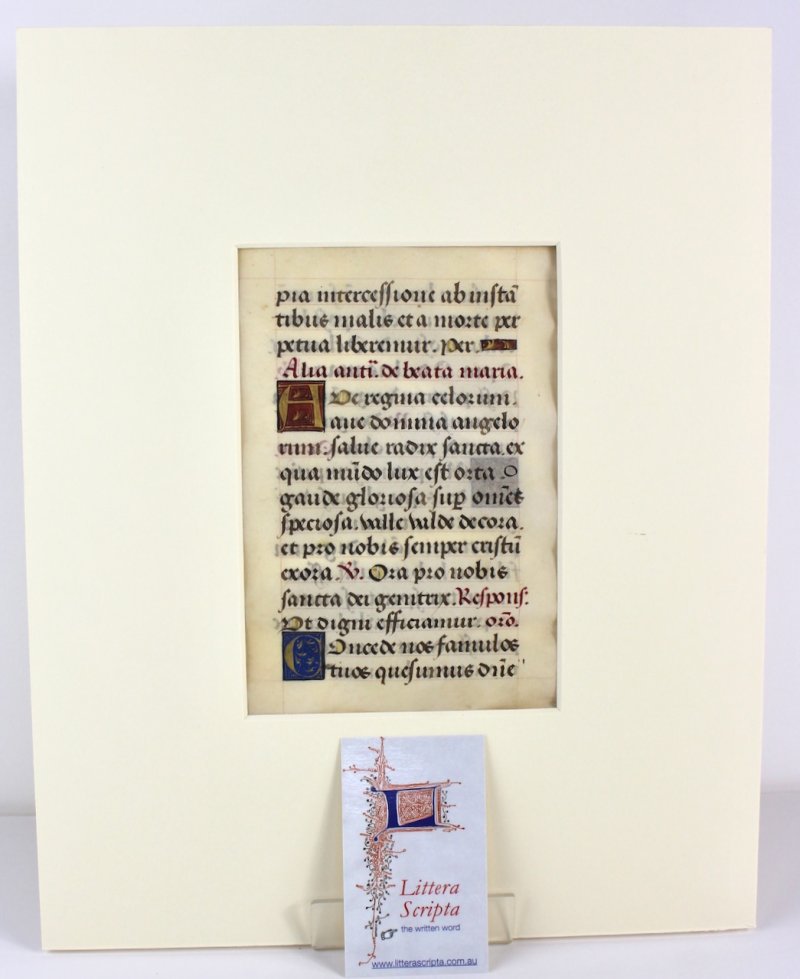 pia intercessione ab instā
tibus malis et a morte per
petua liberemur. Per.
Alia anti. de beata maria.
AUe regina celorum.
aue domina angelo
rum. salue radix sancta. ex
qua mūdo lux est orta
gaude gloriosa sup omēs
speciosa. valle valde decora.
et pro nobis semper cristū
exora. V. Ora pro nobis
sancta dei genitrix. Respons:
Vt digni efficiamur. orō.
COncede nos famulos
tuos quesumus dn̄e
Littera
Scripta
the written word
www.litterascripta.com.au